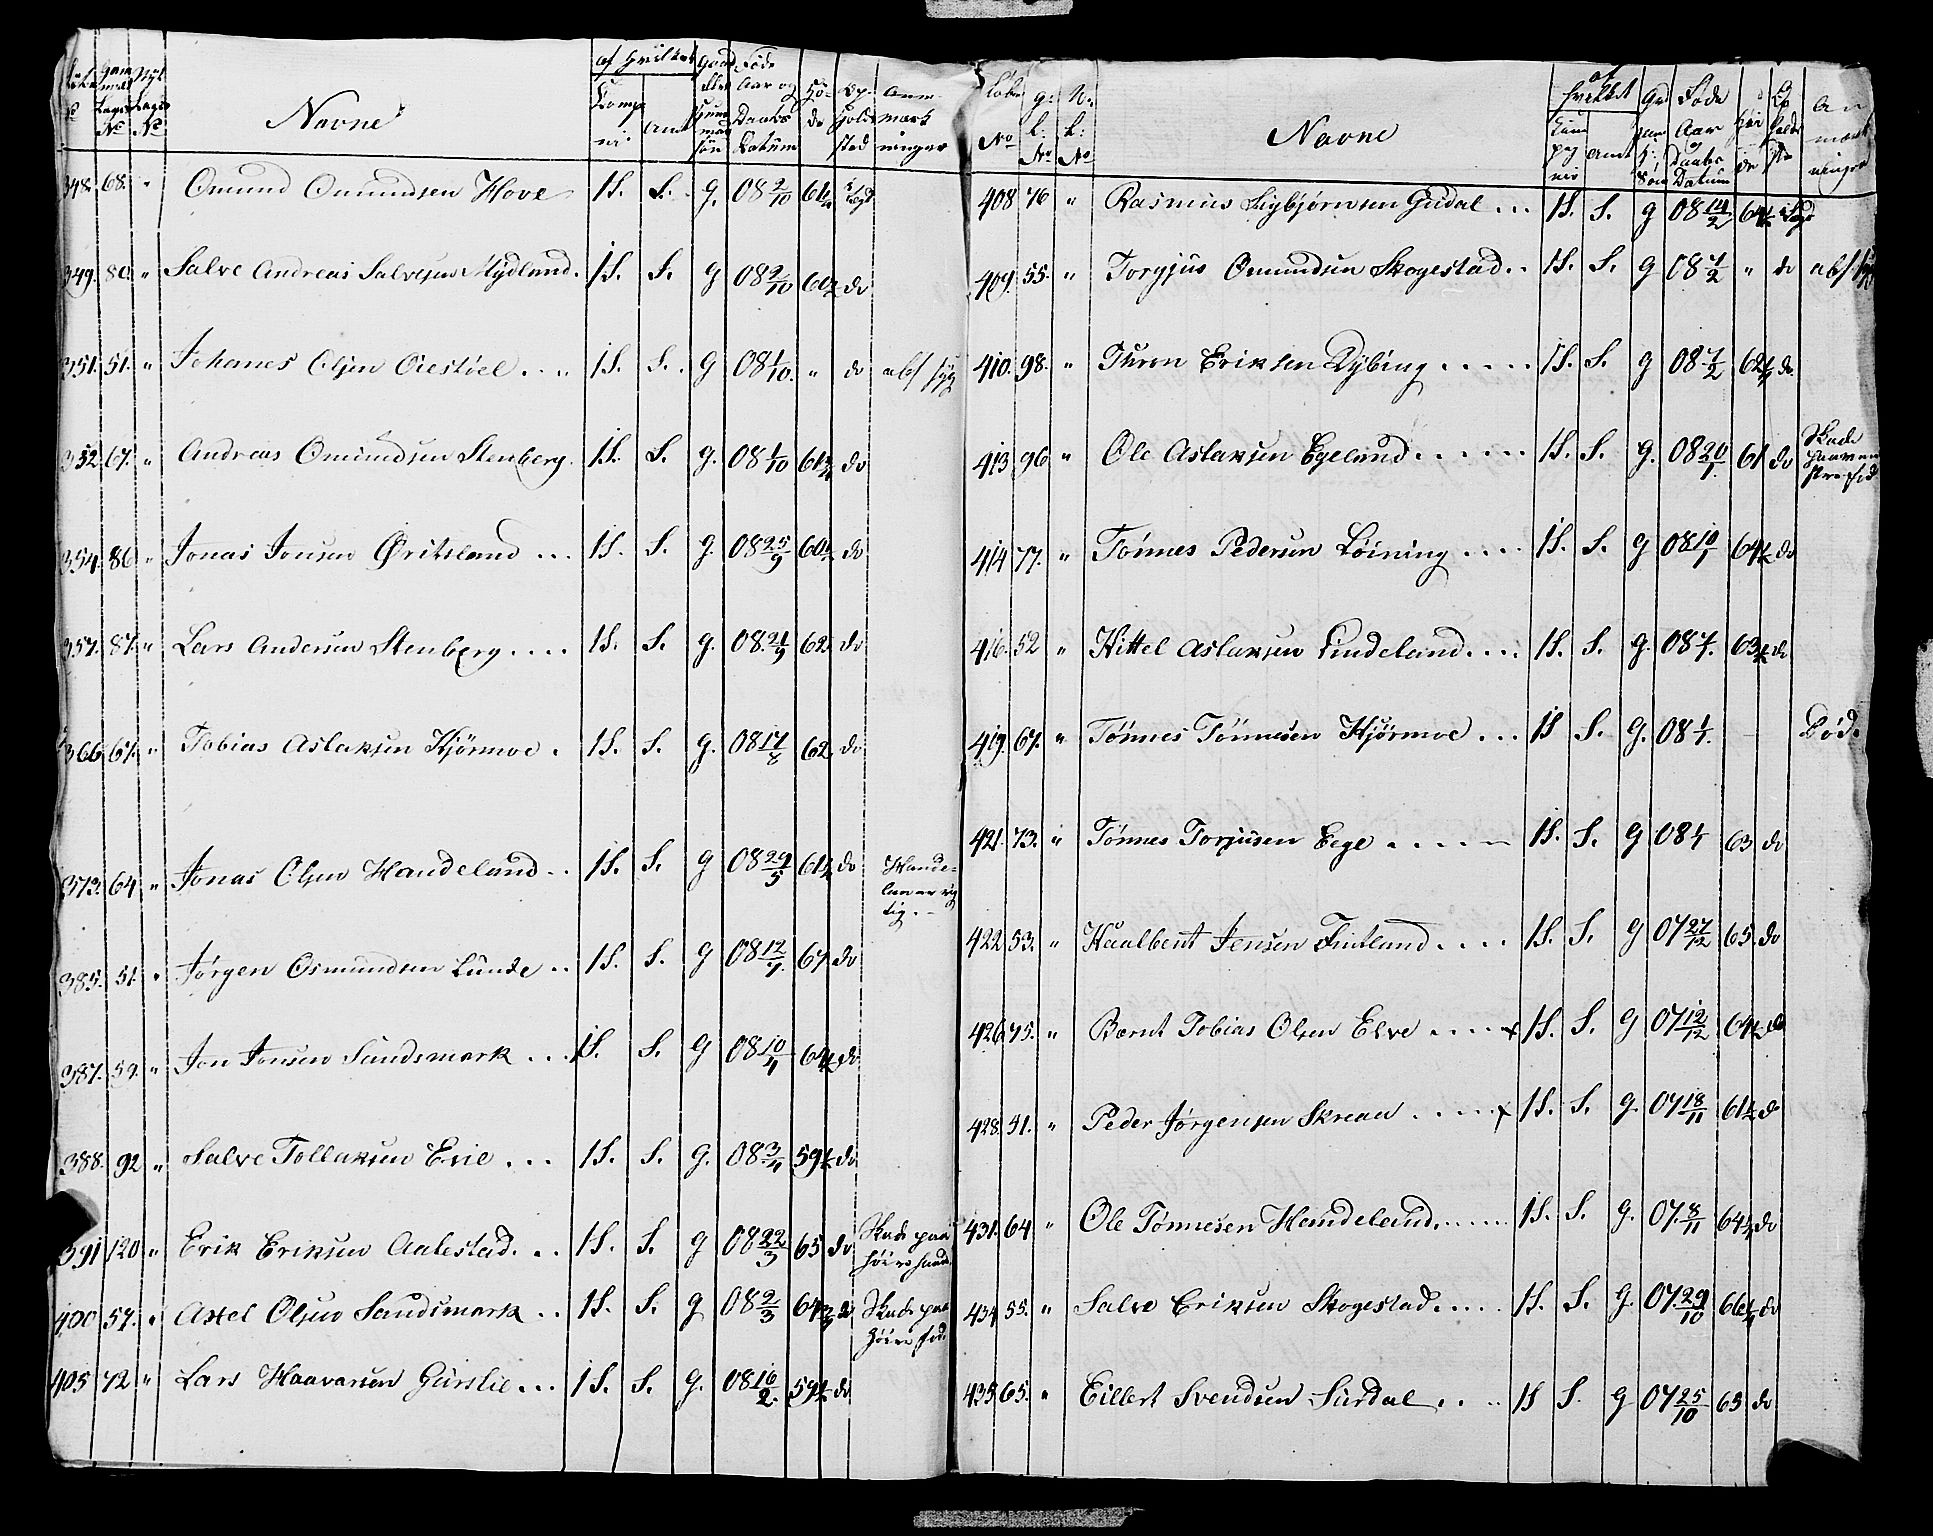 Navne
Komp
Amt
348. 68. " Omund Omundsen Hove 1S. S. g. 08 2/10 61
349. 80. " Salve Andreas Salvesen Mydland. 1S. S. g 08 2/10 60 do
351. 51. " Johanes Olsen Oiestöel . . . 1S. S. g 08 1/10. " do abs syg
352 67. " Andreas Omundsen Stenberg. 1S. S. g. 08 1/10 61 do
354. 86 " Jonas Jonsen Øritsland . . . 1S. S. g. 08 25/9 60 do
357. 87. " Lars Andersen Stenberg . . . . 1S. S. g. 08 21/9 62 do
366 67. " Tobias Aslaksen Kjörmoe . 1S. S. g. 08 17/8 62 do
373. 64 " Jonas Olsen Handeland . . 1S. S. g 08 29/5 61 do Hande-
385. 51. " Jørgen Osmundsen Lunde . . 1S. S. g 08 12/7 67 do
387. 59. " Jon Jonsen Sandsmark . . . 1S. S. g 08 10/4 64 do
388. 92 " Salve Tollaksen Erie . . . 1S. S. g. 08 3/4 59 do
391 120 " Erik Eriksen Aalestad . . . 1S. S. g 08 22/3 65 do Skade paa
höire haand
400 57. " Axel Olsen Sandsmark . . 1S. S. g 08 2/3 64 do Skade paa
höire fod.
405 72 " Lars Haavarsen Gürslie . . . 1S. S. g. 08 16/2. 59 do
Løbe
No
g: L: No
N: L: No
Navne
af
hvilket
Amt
Føde
Aar
og
Daabs
Datum
408 76 " Rasmus Sigbjørnsen Gudal . . . 1S. S. g 08 14/2 64
409. 55. " Torgjus Omundsen Skogestad . . 1S. S. g 08 7/2 " do abs syg
410. 98. " Thron Eriksen Dybing . . . . . 1S. S. g 08 7/2 62 do.
413 96 " Ole Aslaksen Egeland . . . . . . 1S. S. g. 08 20/1 61 do Skade
414 77. " Tönnes Pedersen Löining . . . . 1S. S. g 08 10/1 64 do
416. 52 " Kittel Aslaksen Lindeland . . . . 1S. S. g. 08 63 do
419. 67. " Tönnes Tönnesen Kjörmoe . . . 1S S. g. 08 Död.
421. 73. " Tönnes Torjusen Eege . . . . . 1S. S. g 08 63 do
422. 53. " Haalbent Jensen Fintland . . . . 1S. S. g 07 27/12 65. do
426 75. " Bernt Tobias Olsen Elve . . . . x 1S. S. g 07 12/12 64 do
428. 51. " Peder Jørgensen Skreaa . . . . x 1S. S. g. 07 18/11 61 do
431. 64 " Ole Tönnesen Handeland . . . . . 1S. S. g. 07. 8/11 64 do
434 55. " Salve Eriksen Skogestad . . . . . 1S. S. g. 07. 29/10 66 do
435 65. " Eillert Svendsen Sirdal . . . . 1S S. g 07 25/10 63 do